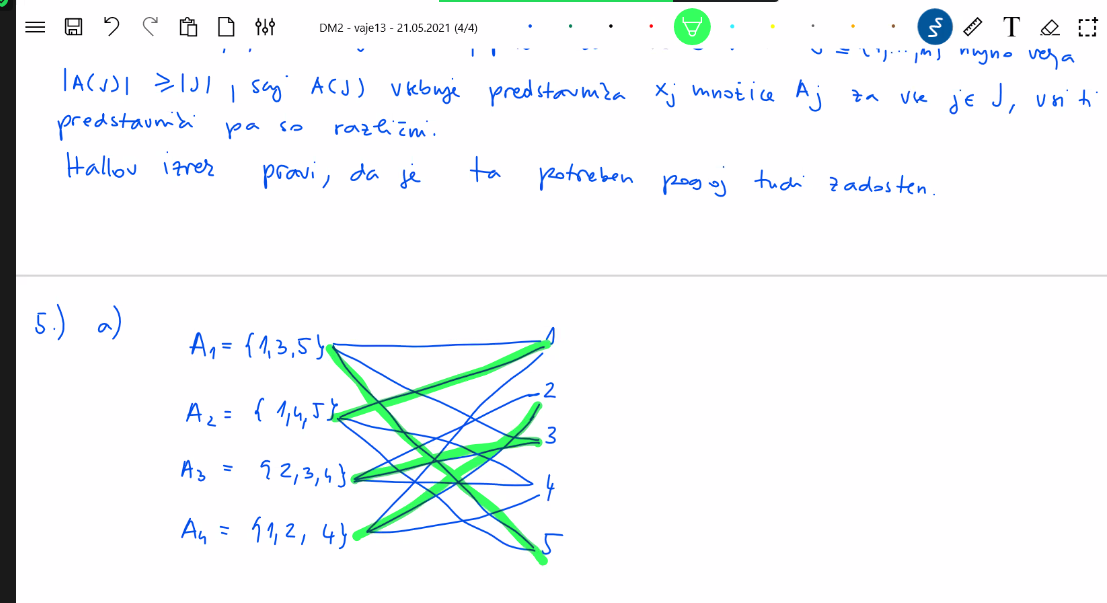 DM2 - vaje13 - 21.05.2021 (4/4)
T
J = {1,...,n} nujno velja
|A(J)| ≥ |J|, saj A(J) vsebuje predstavnika xj množice Aj za vse j∈J, vsi ti
predstavniki pa so različni.
Hallov izrek pravi, da je ta potreben pogoj tudi zadosten.
5.) a)
A1 = {1,3,5} 1
2
A2 = { 1,4,5} 3
A3 = {2,3,4} 4
A4 = {1,2, 4} 5